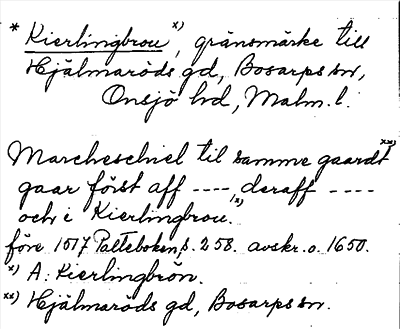 * Kierlingbrou x), gränsmärke till
Hjälmaröds gd, Bosarps sn,
Onsjö hd, Malm. l.
Marcheschiel til samme gaardt xx)
gaar först aff ---- deraff ----
och i Kierlingbrou. x)
före 1517 Palteboken, s. 258. avskr. o. 1650.
x) A: Kierlingbrön.
xx) Hjälmaröds gd, Bosarps sn.